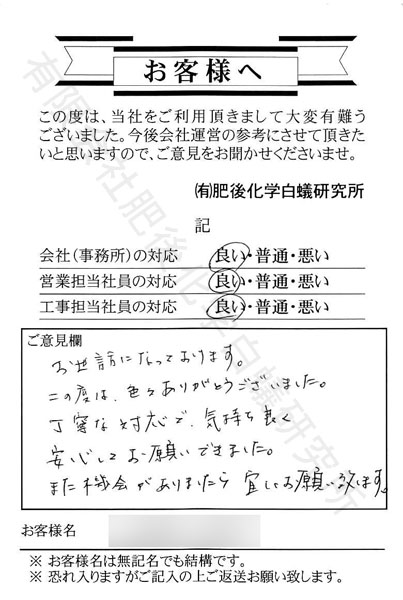 お客様へ
この度は、当社をご利用頂きまして大変有難う
ございました。今後会社運営の参考にさせて頂きた
いと思いますので、ご意見をお聞かせくださいませ。
㈲肥後化学白蟻研究所
記
会社(事務所)の対応 良い・普通・悪い
営業担当社員の対応 良い・普通・悪い
工事担当社員の対応 良い・普通・悪い
ご意見欄
お世話になっております。
この度は、色々ありがとうございました。
丁寧な対応で、気持ち良く
安心してお願いできました。
また機会がありましたら宜しくお願い致します。
お客様名
※ お客様名は無記名でも結構です。
※ 恐れ入りますがご記入の上ご返送お願い致します。
有限会社肥後化学白蟻研究所